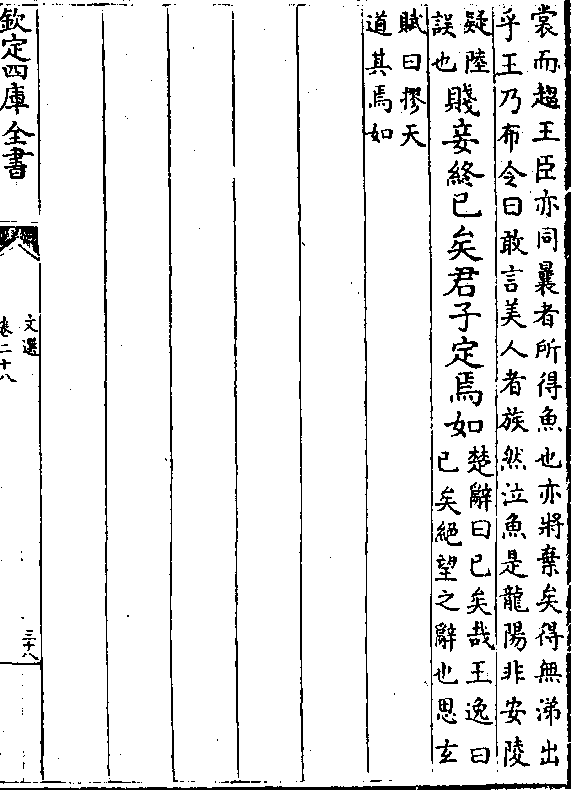 裳而趨王臣亦同曩者所得魚也亦將棄矣得無涕出
乎王乃布令曰敢言美人者族然泣魚是龍陽非安陵
疑陸
誤也
賤妾終已矣君子定焉如
楚辭曰已矣哉王逸曰
已矣絕望之辭也思玄
賦曰摎天
道其焉如
欽定四庫全書
文選
卷二十八
三十八